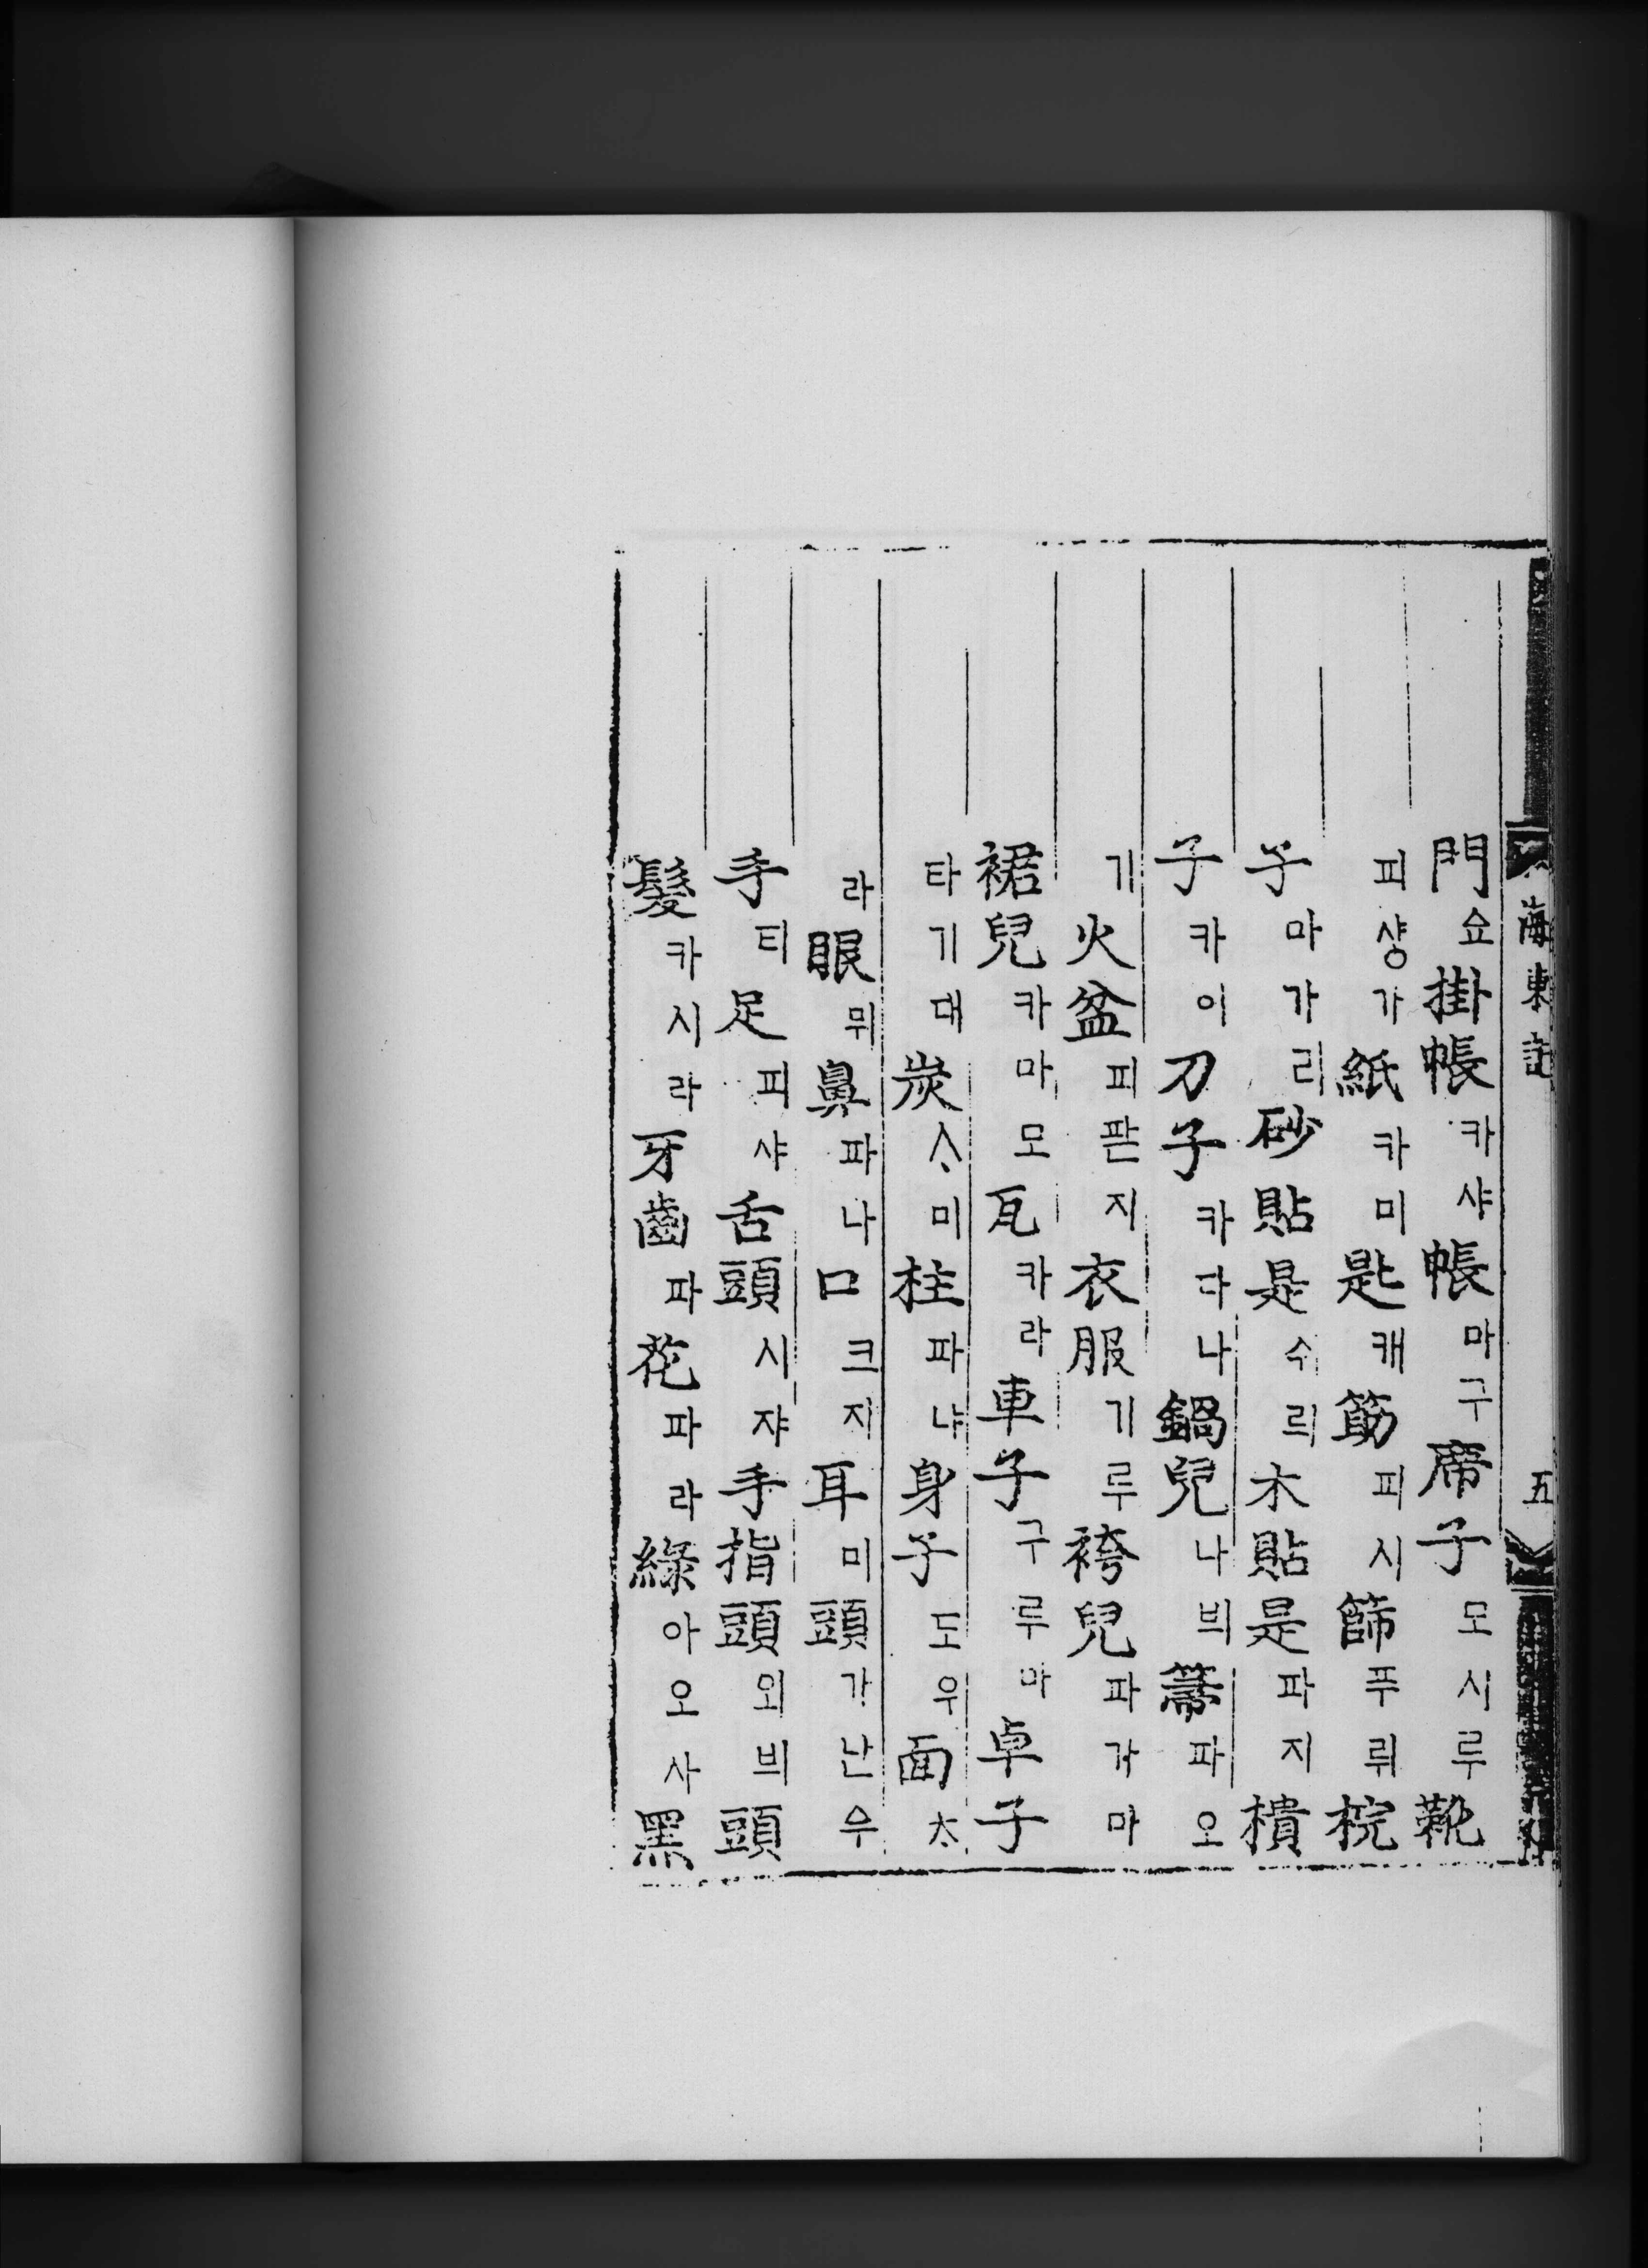 海東記　五
門쇼掛帳카샤帳마구席子모시루靴
피샹가紙카미匙캐筯피시篩푸뤼椀
子마가리砂貼是수릐木貼是파지樻
子카이刀子카다나鍋兒나븨箒파오
기火盆피판지衣服기루袴兒파가마
裙兒카마모瓦카라車子구루마卓子
타기대炭ᄉᆞ미柱파냐身子도우面ᄎᆞ
라眼뮈鼻파나口크지耳미頭가난우
手티足피샤舌頭시쟈手指頭외븨頭
髮카시라牙齒파花파라綠아오사黑